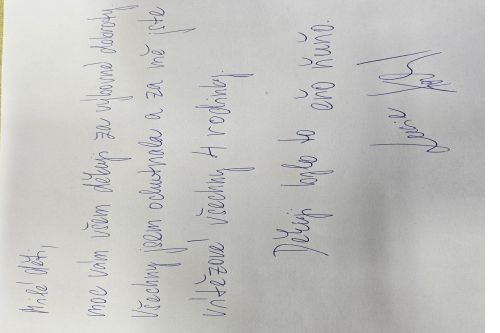 Milé děti,
moc vám všem děkuji za výborné dobroty.
Všechny jsem ochutnala a za mě jste
vítězové všechny 4 rodinky.
Děkuji bylo to eňo ňuňo.